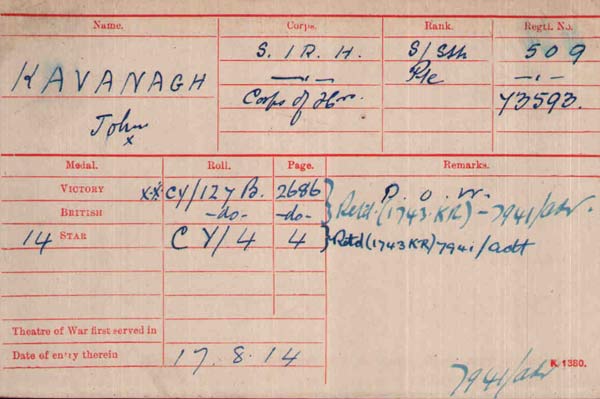 Name. Corps. Rank. Regtl. No.
KAVANAGH S. I R. H. S/Sth 509
—„— Pte —„—
John Corps of Hrs. 73593.
x
Medal. Roll. Page. Remarks.
VICTORY x-x CY/127 B. 2686 P. O. W.
BRITISH -do- -do- Retd. (1743.KR) - 7941/adt.
14 STAR CY/4 4 Retd (1743 KR) 7941/adt
Theatre of War first served in
Date of entry therein 17.8.14
K 1380.
7941/adt